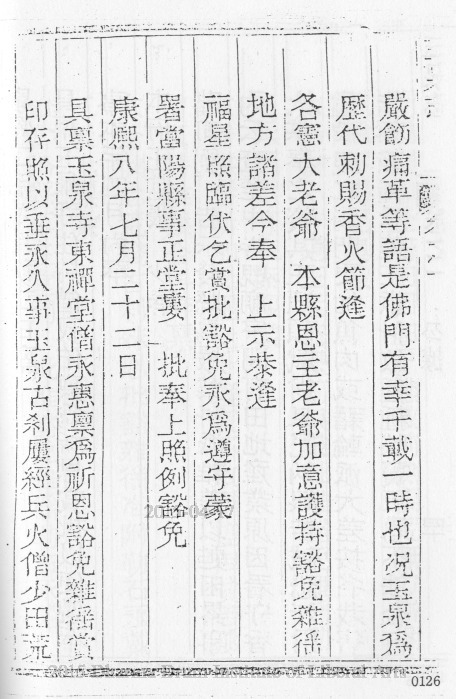 嚴飭痛革等語是佛門有幸千載一時也况玉泉爲
歷代勅賜香火節逢
各憲大老爺　本縣恩主老爺加意護持豁免雜徭
地方諸差今奉　上示恭逢
福星照臨伏乞賞批豁免永爲遵守蒙
署當陽縣事正堂婁　批奉上照例豁免
康熙八年七月二十二日
具稟玉泉寺東禪堂僧永惠稟爲祈恩豁免雜徭賞
印存照以垂永久事玉泉古刹屢經兵火僧少田荒
0126